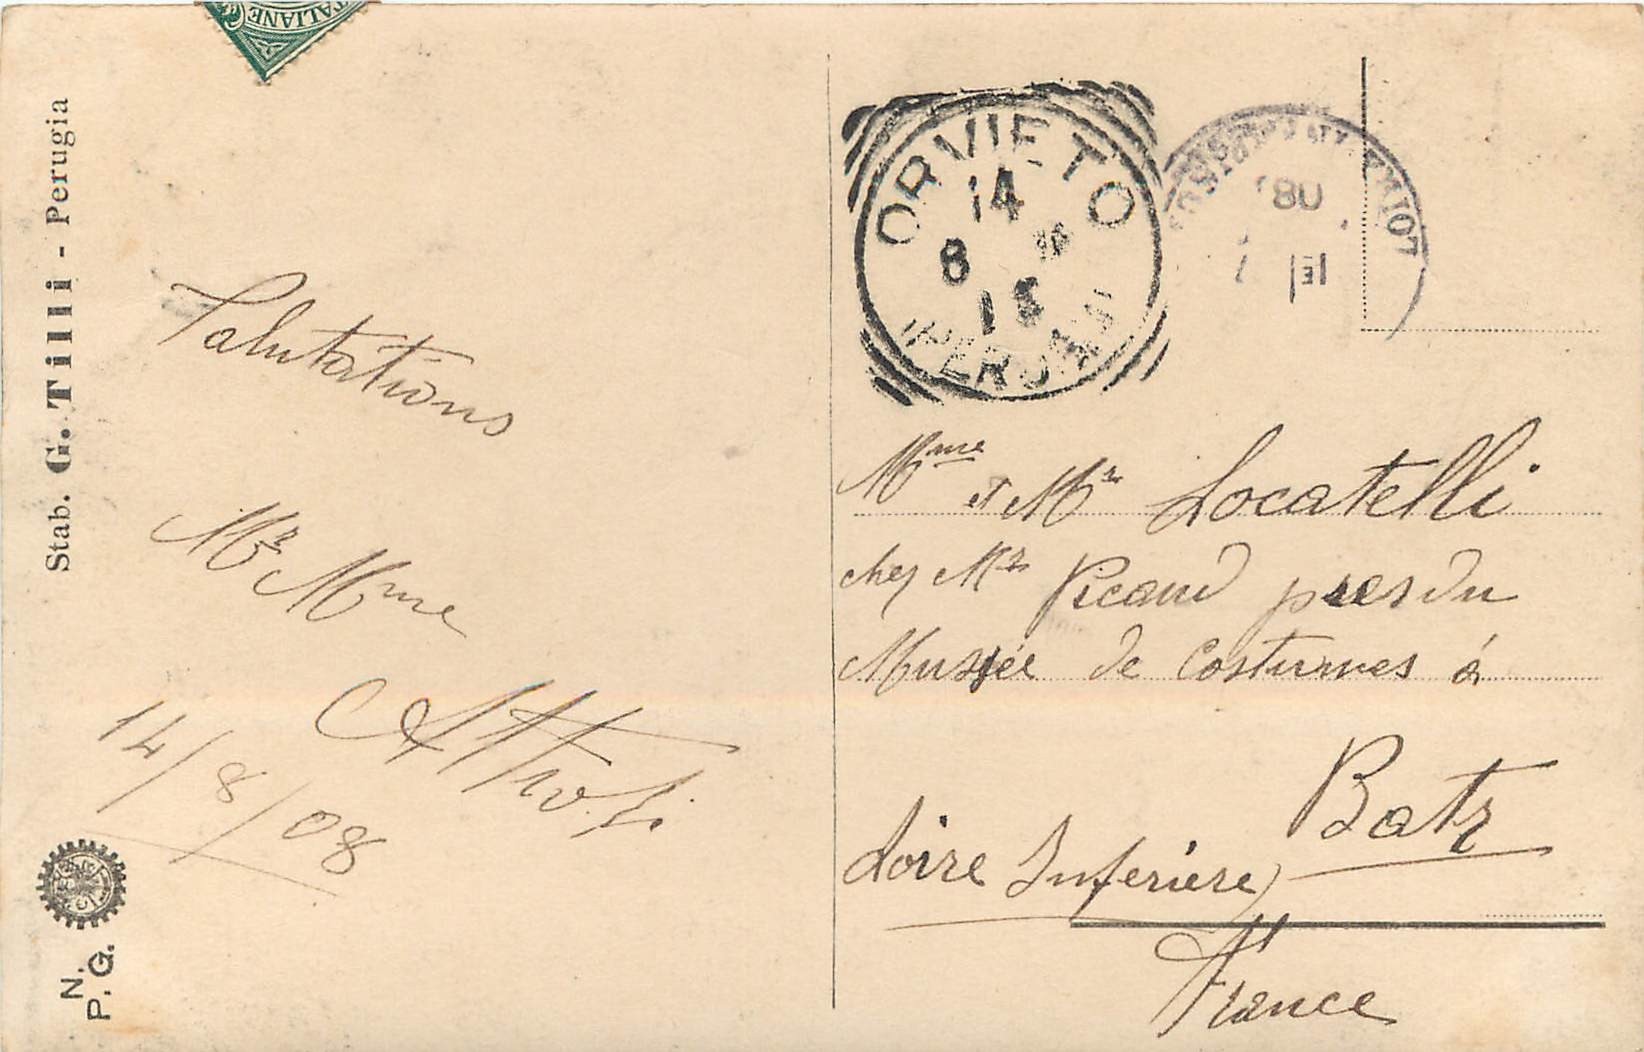 ITALIANE
Stab. G. Tilli - Perugia
Salutations
Mr Mme
14/8/08
N.
P. G.
ORVIETO
14
8
(PERUGIA)
08
Mme et Mr Locatelli
chez Mr Picaud pres du
Musée de Costumes à
Batz
Loire Inferiere)
France